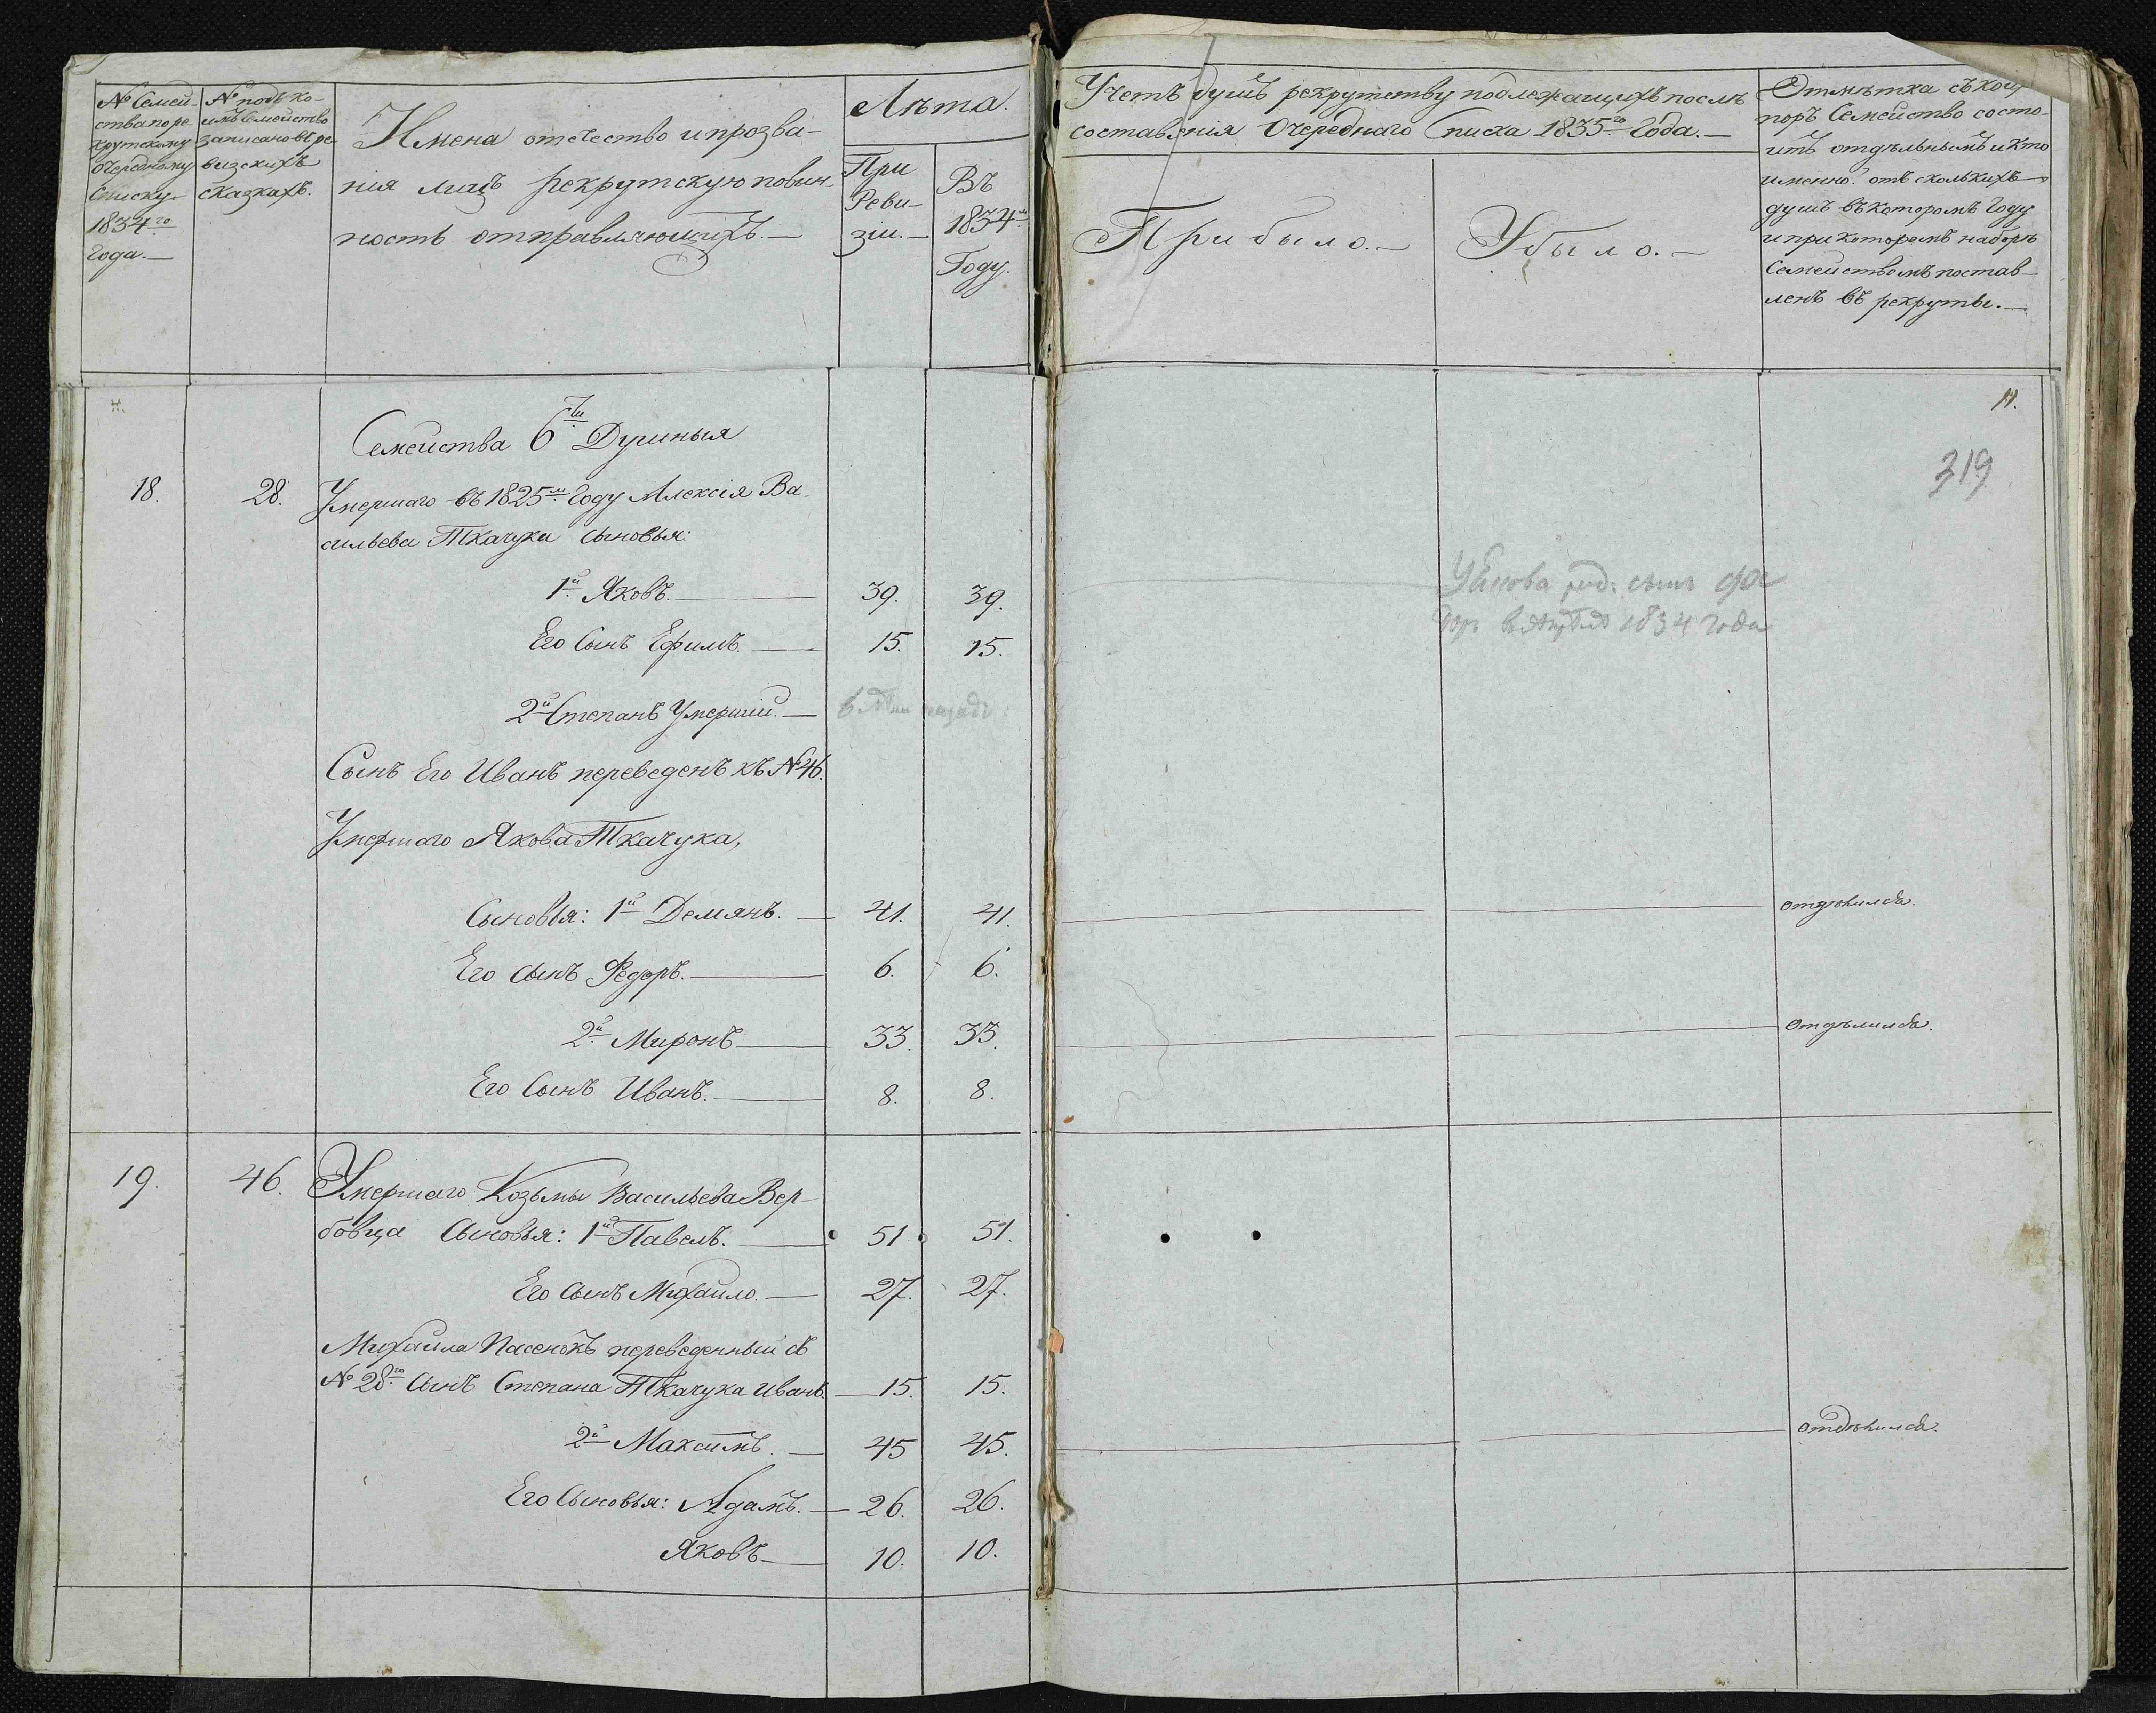 № Семей-
ства по ре-
крутскому
очередному
Списку
1834го
Года.—
№ подъ ко-
имъ семейство
записано въ ре-
визскихъ
сказкахъ.
Имена отечество и прозва-
нія лицъ рекрутскую повин-
ность отправляющихъ.—
Лѣта.
При
Реви-
зіи.—
Въ
1834м
Году.
Учетъ душъ рекрутству подлежащихъ послѣ
составленія Очереднаго Списка 1835го Года.—
Прибыло.—
Убыло.—
Отмѣтка съ кои
поръ Семейство состо-
итъ отдѣльнымъ и кто
именно отъ сколькихъ
душъ въ которомъ Году
и при которомъ наборѣ
Семействомъ постав-
ленъ въ рекруты.—
11.
319
Семейства 6ти Душныя
18. 28. Умершаго въ 1825м Году Алексія Ва-
сильева Ткачука сыновья:
1й Яковъ.— 39. 39.
Его Сынъ Ефимъ.— 15. 15.
У Якова род: сынъ Фе
доръ 1834 года
2й Степанъ Умершій.—
Сынъ Его Иванъ переведенъ къ №46.
Умершаго Якова Ткачука,
Сыновья: 1й Демянъ.— 41. 41. отдѣлился.
Его сынъ Федоръ.— 6. 6.
2й Миронъ— 33. 33. отдѣлился.
Его Сынъ Иванъ.— 8. 8.
19. 46. Умершаго Козьмы Васильева Вер-
бовца Сыновья: 1й Павелъ.— 51 51.
Его сынъ Михайло.— 27. 27.
Михайла Пасенокъ переведенный съ
№ 28го сынъ Степана Ткачука Иванъ.— 15. 15.
2й Максимъ.— 45 45. отдѣлился.
Его Сыновья: Адамъ.— 26. 26.
Яковъ— 10. 10.